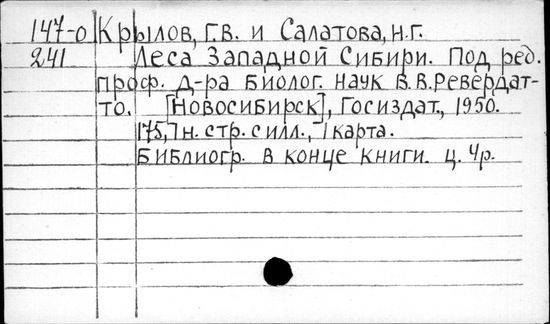 147-0 Крылов, Г.В. и Салатова, Н.Г.
241 Леса Западной Сибири. Под ред.
проф. д-ра биолог. наук В.В.Ревердат-
то. [Новосибирск], Госиздат., 1950.
175, 7 н. стр. с илл., 1 карта.
Библиогр. в конце книги. ц. 4р.